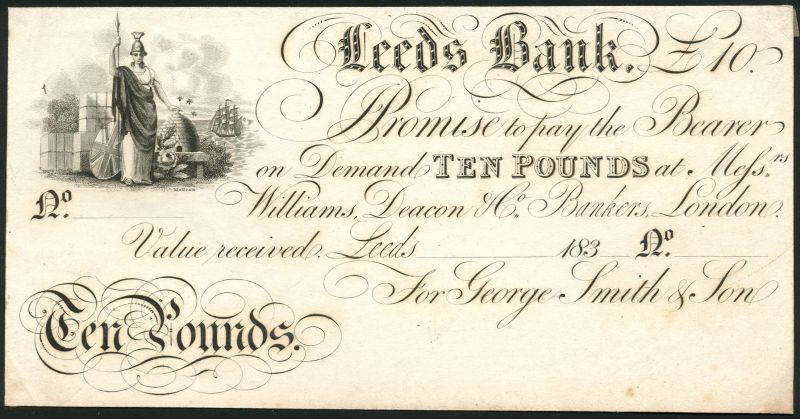 Leeds Bank. £10.
Promise to pay the Bearer
on Demand TEN POUNDS at Meſs.rs
No. Williams, Deacon & Co. Bankers, London.
Value received. Leeds 183 No.
For George Smith & Son
Ten Pounds.